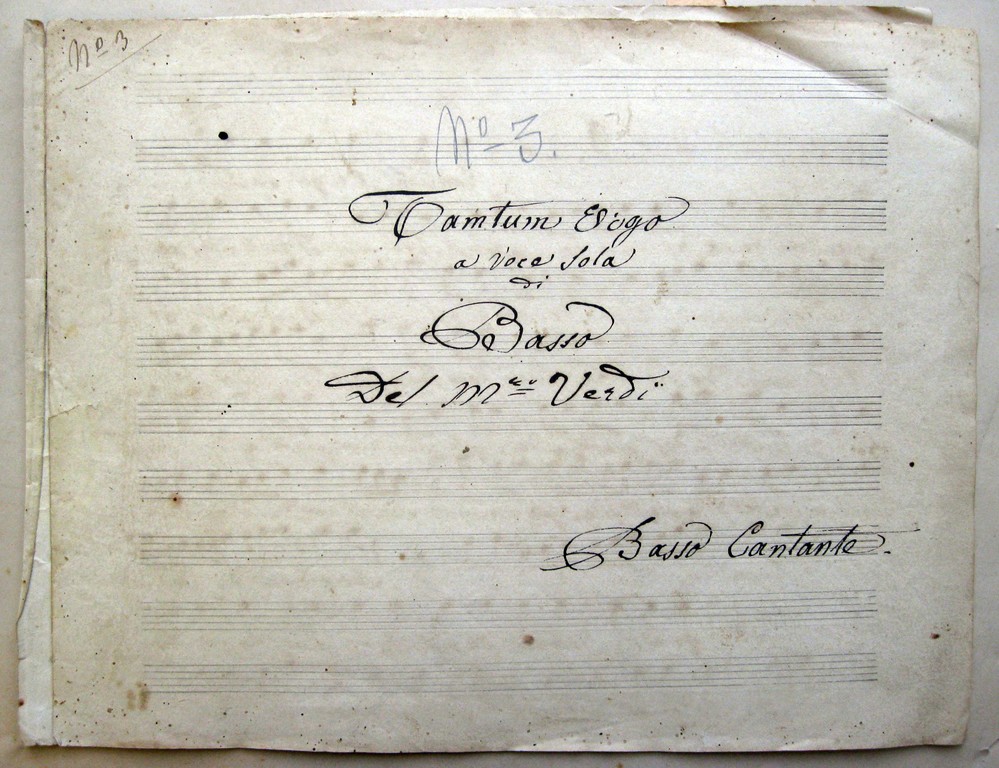 Nº 3
Nº 3.
Tamtum Ergo
a voce sola
di
Basso
Del Mro Verdi
Basso Cantante.